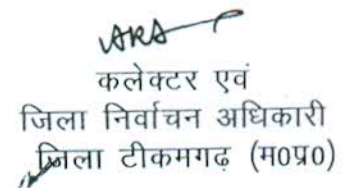 कलेक्टर एवं
जिला निर्वाचन अधिकारी
जिला टीकमगढ़ (म0प्र0)